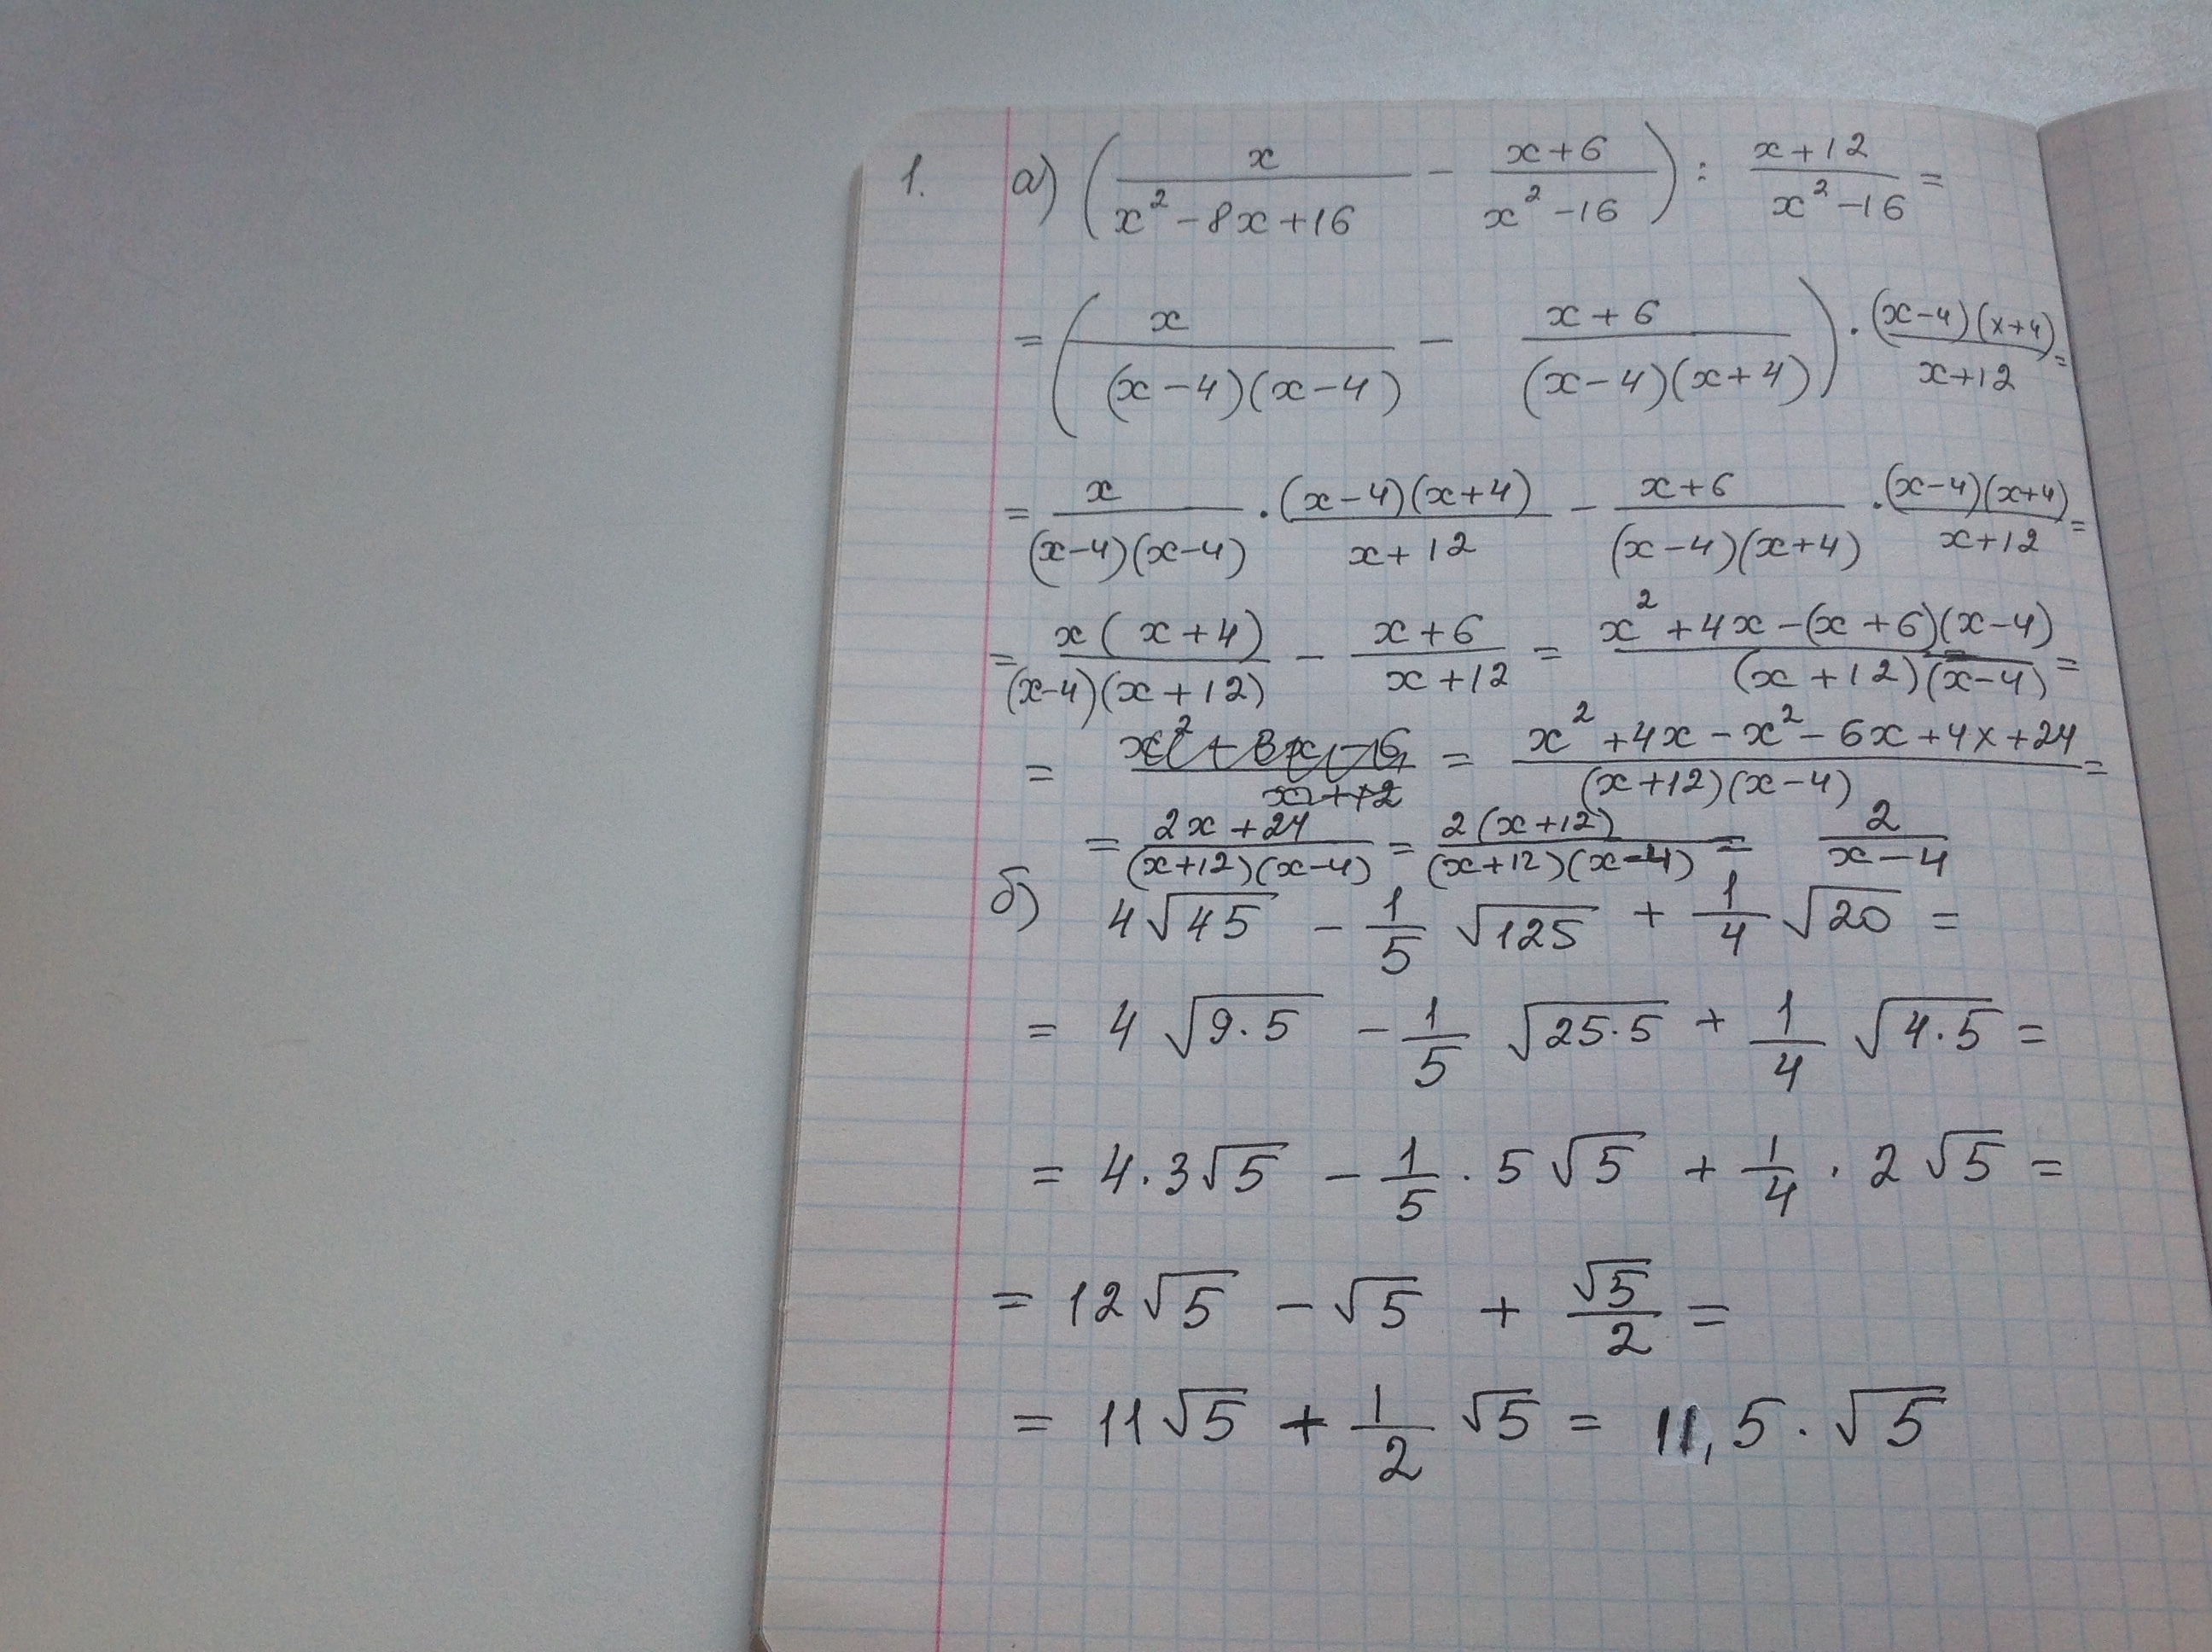 1. а) (x/(x² - 8x + 16) - (x+6)/(x² - 16)) : (x+12)/(x² - 16) =
= (x/((x-4)(x-4)) - (x+6)/((x-4)(x+4))) · ((x-4)(x+4))/(x+12) =
= x/((x-4)(x-4)) · ((x-4)(x+4))/(x+12) - (x+6)/((x-4)(x+4)) · ((x-4)(x+4))/(x+12) =
= x(x+4)/((x-4)(x+12)) - (x+6)/(x+12) = (x² + 4x - (x+6)(x-4))/((x+12)(x-4)) =
= = (x² + 4x - x² - 6x + 4x + 24)/((x+12)(x-4)) =
= (2x+24)/((x+12)(x-4)) = 2(x+12)/((x+12)(x-4)) = 2/(x-4)
б) 4√45 - 1/5 √125 + 1/4 √20 =
= 4 √(9·5) - 1/5 √(25·5) + 1/4 √(4·5) =
= 4·3√5 - 1/5 · 5√5 + 1/4 · 2√5 =
= 12√5 - √5 + √5/2 =
= 11√5 + 1/2 √5 = 11,5 · √5